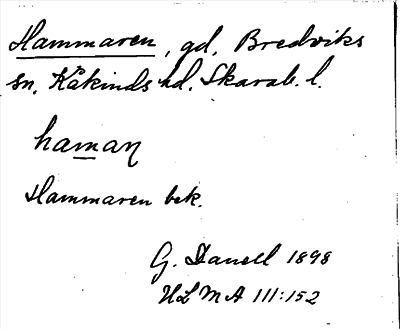 Hammaren, gd, Bredviks
sn, Kåkinds hd. Skarab. l.
haman
Hammaren bek.
G. Danell 1898
ULMA 111:152